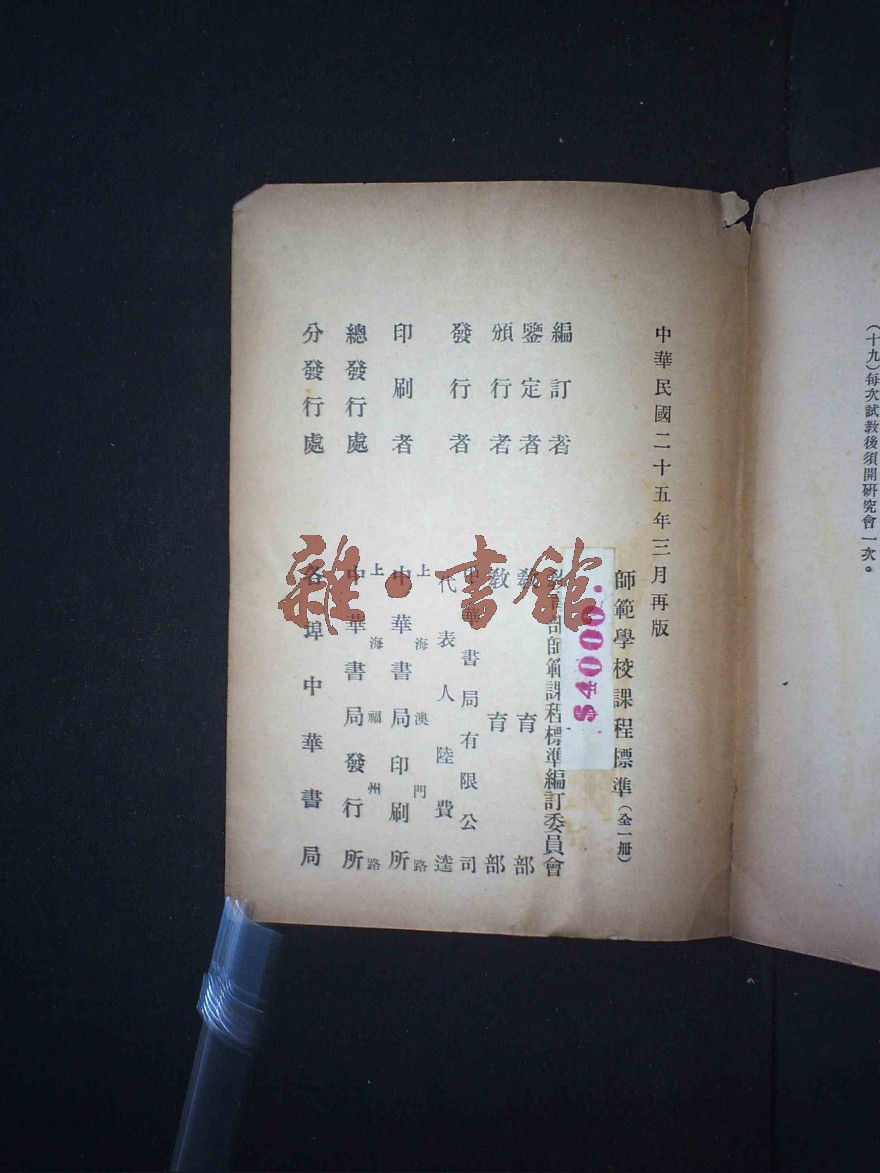 （十九）每次試教後須開研究會一次。
中華民國二十五年三月再版
師範學校課程標準（全一冊）
編訂者 教育部師範課程標準編訂委員會
鑒定者 教育部
頒行者 教育部
發行者 中華書局有限公司
代表人陸費逵
印刷者 上海澳門路
中華書局印刷所
總發行處 上海福州路
中華書局發行所
分發行處 各埠中華書局
54000.
雜·書館